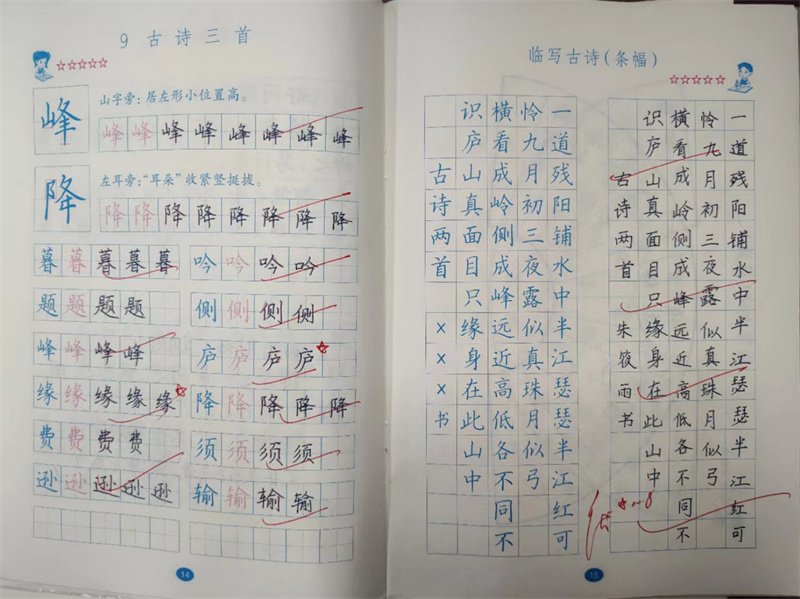 9 古诗三首
峰
山字旁:居左形小位置高。
峰峰峰峰峰峰峰峰
降
左耳旁:“耳朵”收紧竖挺拔。
降降降降降降降降
暮暮暮暮暮
吟吟吟吟
题题题题
侧侧侧侧
峰峰峰峰
庐庐庐庐
缘缘缘缘缘
降降降降降
费费费费
须须须须
逊逊逊逊逊
输输输输
14
临写古诗(条幅)
一道残阳铺水中半江瑟瑟半江红可
怜九月初三夜露似真珠月似弓
横看成岭侧成峰远近高低各不同不
识庐山真面目只缘身在此山中
古诗两首×××书
一道残阳铺水中半江瑟瑟半江红可
怜九月初三夜露似真珠月似弓
横看成岭侧成峰远近高低各不同不
识庐山真面目只缘身在此山中
古诗两首朱雨书
15